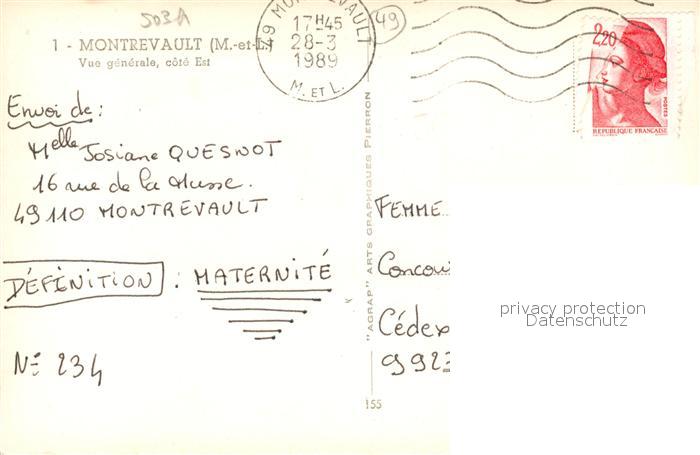 503A
49
1 - MONTREVAULT (M.-et-L.)
Vue générale, côté Est
49 MONTREVAULT
17H45
28-3
1989
M. ET L.
2,20
POSTES
REPUBLIQUE FRANÇAISE
Envoi de :
Melle Josiane QUESNOT
16 rue de la Musse.
49110 MONTREVAULT
DÉFINITION : MATERNITÉ
N° 234
"AGRAP" ARTS GRAPHIQUES PIERRON
155
FEMME
Concou
Cédex
9923
privacy protection
Datenschutz